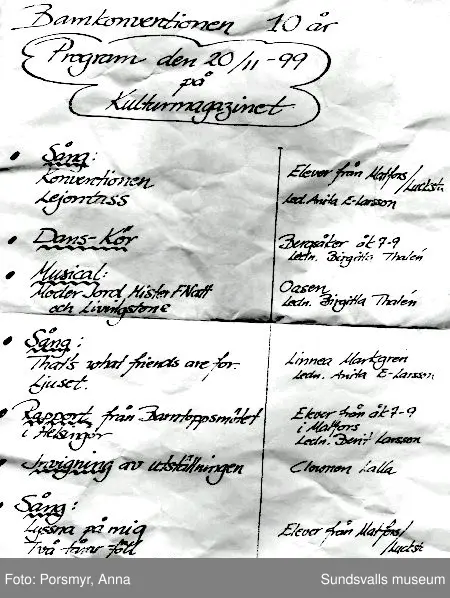 Barnkonventionen 10 år
Program den 20/11-99
på
Kulturmagazinet
• Sång:
Konventionen
Lejontass
Elever från Matfors/
Led. Anita E-Larsson
• Dans-Kör
Bergsåker åk 7-9
Ledn. Birgitta Thalén
• Musical:
Moder Jord, Mister FNatt
och Livingstone
Oasen
Ledn. Birgitta Thalén
• Sång:
That's what friends are for.
Ljuset.
Linnea Markgren
Ledn. Anita E-Larsson
• Rapport från Barntoppsmötet
i Helsingör
Elever från åk 7-9
i Matfors
Ledn. Berit Larsson
• Invigning av utställningen
Clownen Lalla
• Sång:
Lyssna på mig
Två tårar föll
Elever från Matfors/
Foto: Porsmyr, Anna
Sundsvalls museum